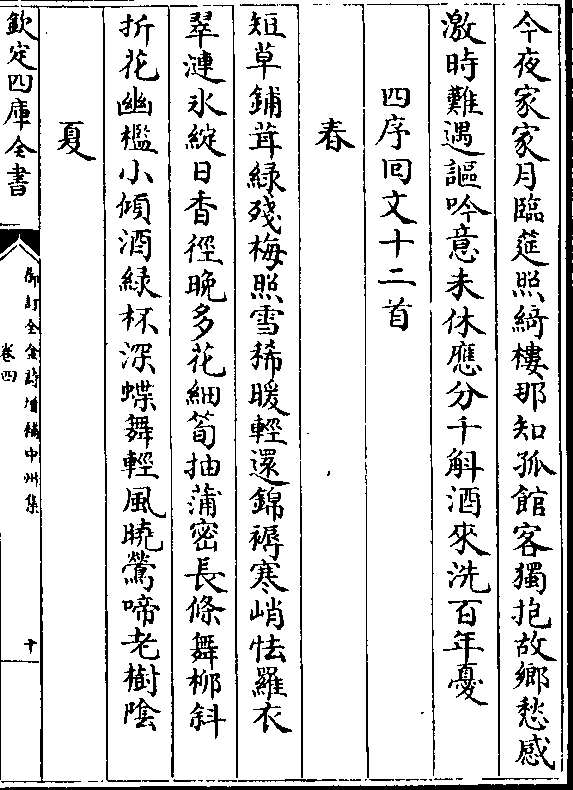 今夜家家月臨筵照綺樓那知孤館客獨抱故鄉愁感
激時難遇謳吟意未休應分千斛酒來洗百年憂
四序回文十二首
春
短草鋪茸緑殘梅照雪稀暖輕還錦褥寒峭怯羅衣
翠漣氷綻日香徑晚多花細筍抽蒲密長條舞柳斜
折花幽檻小傾酒緑杯深蝶舞輕風曉鶯啼老樹陰
夏
欽定四庫全書
御訂全金詩增補中州集
卷四
十